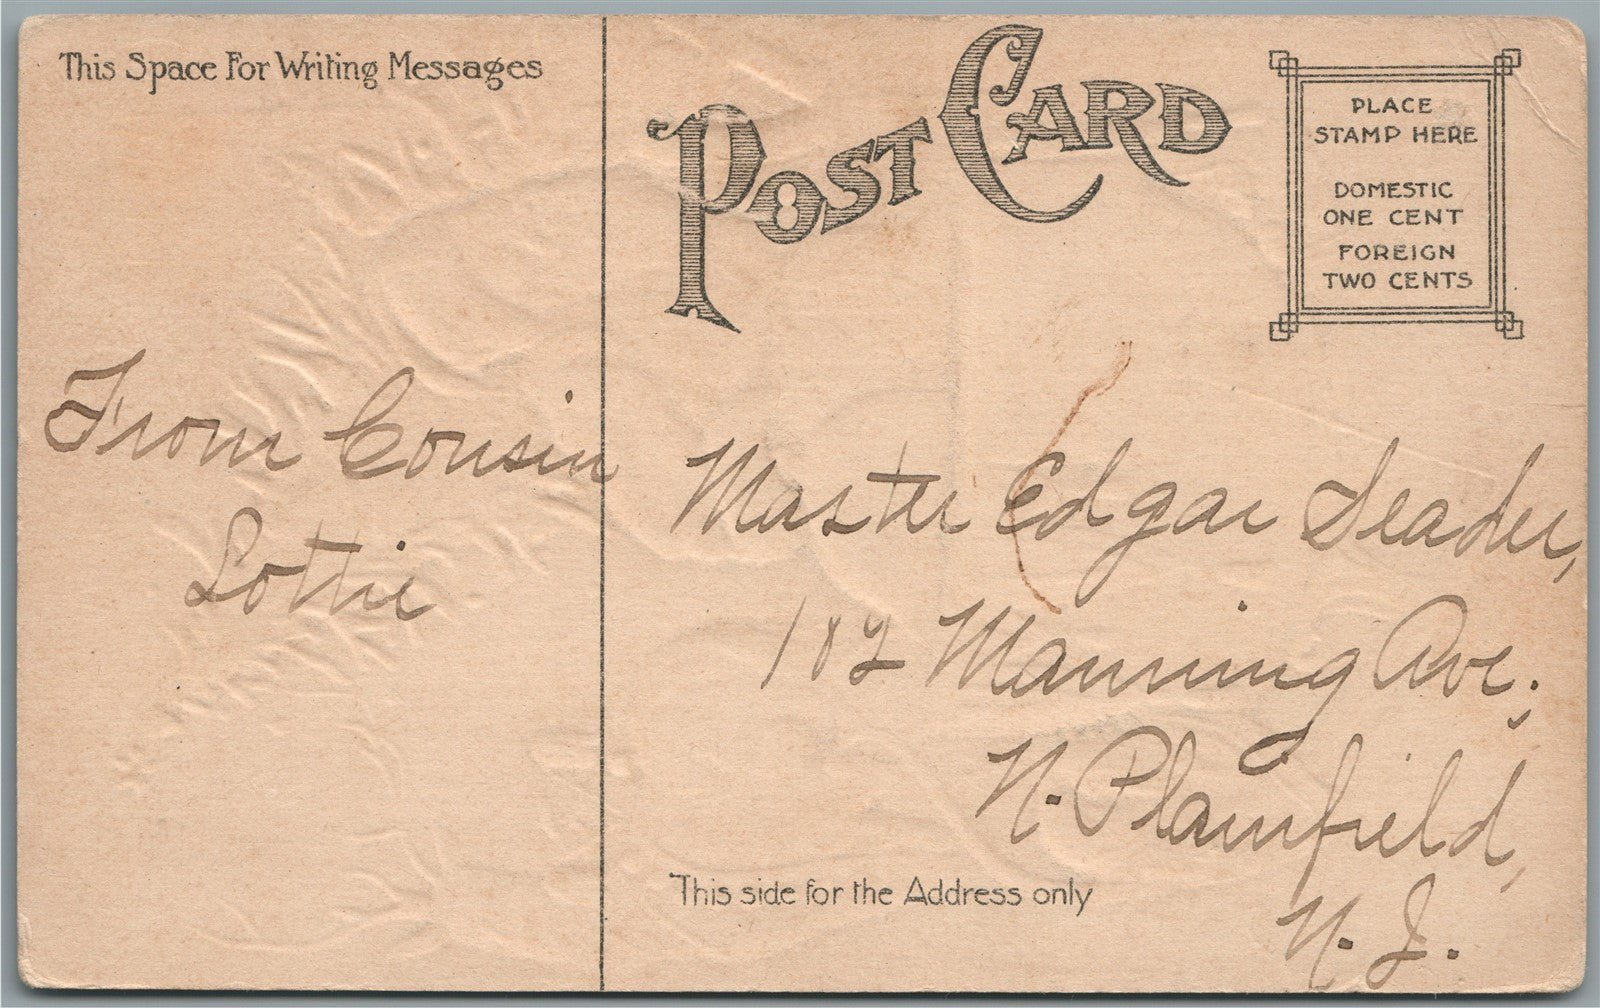 This Space For Writing Messages
POST CARD
PLACE
STAMP HERE
DOMESTIC
ONE CENT
FOREIGN
TWO CENTS
From Cousin
Lottie
Master Edgar Leader,
182 Manning Ave.,
N. Plainfield,
N. J.
This side for the Address only
8